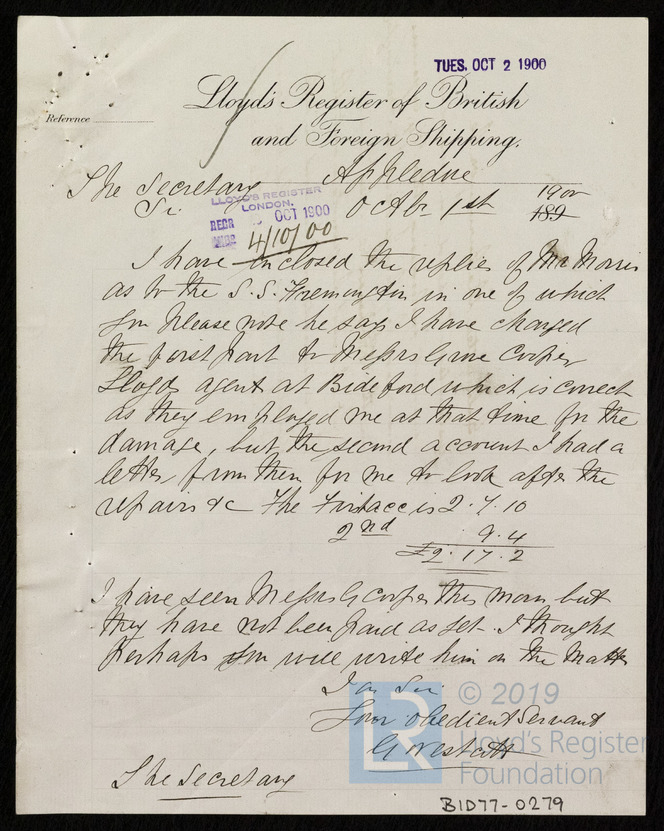 TUES. OCT 2 1900
Lloyd's Register of British
and Foreign Shipping.
Reference
Appledore
The Secretary
Sir
LLOYD'S REGISTER
LONDON.
RECR OCT 1900
4/10/00
Octbr 1st 1900
189
I have enclosed the replies of Mr Morris
as to the S.S. Fremington in one of which
you please note he says I have charged
the first part to Messrs Grove Cooper
Lloyds agent at Bideford which is correct
as they employed me at that time for the
damage, but the second account I had a
letter from them for me to look after the
repairs &c The First acc is 2.7.10
2nd 9.4
£2.17.2
I have seen Messrs G Cooper this morn but
they have not been paid as yet. I thought
Perhaps you will write him on the Matter
I am Sir
Your obedient Servant
The Secretary
© 2019
LR
Lloyd's Register
Foundation
BID77-0279